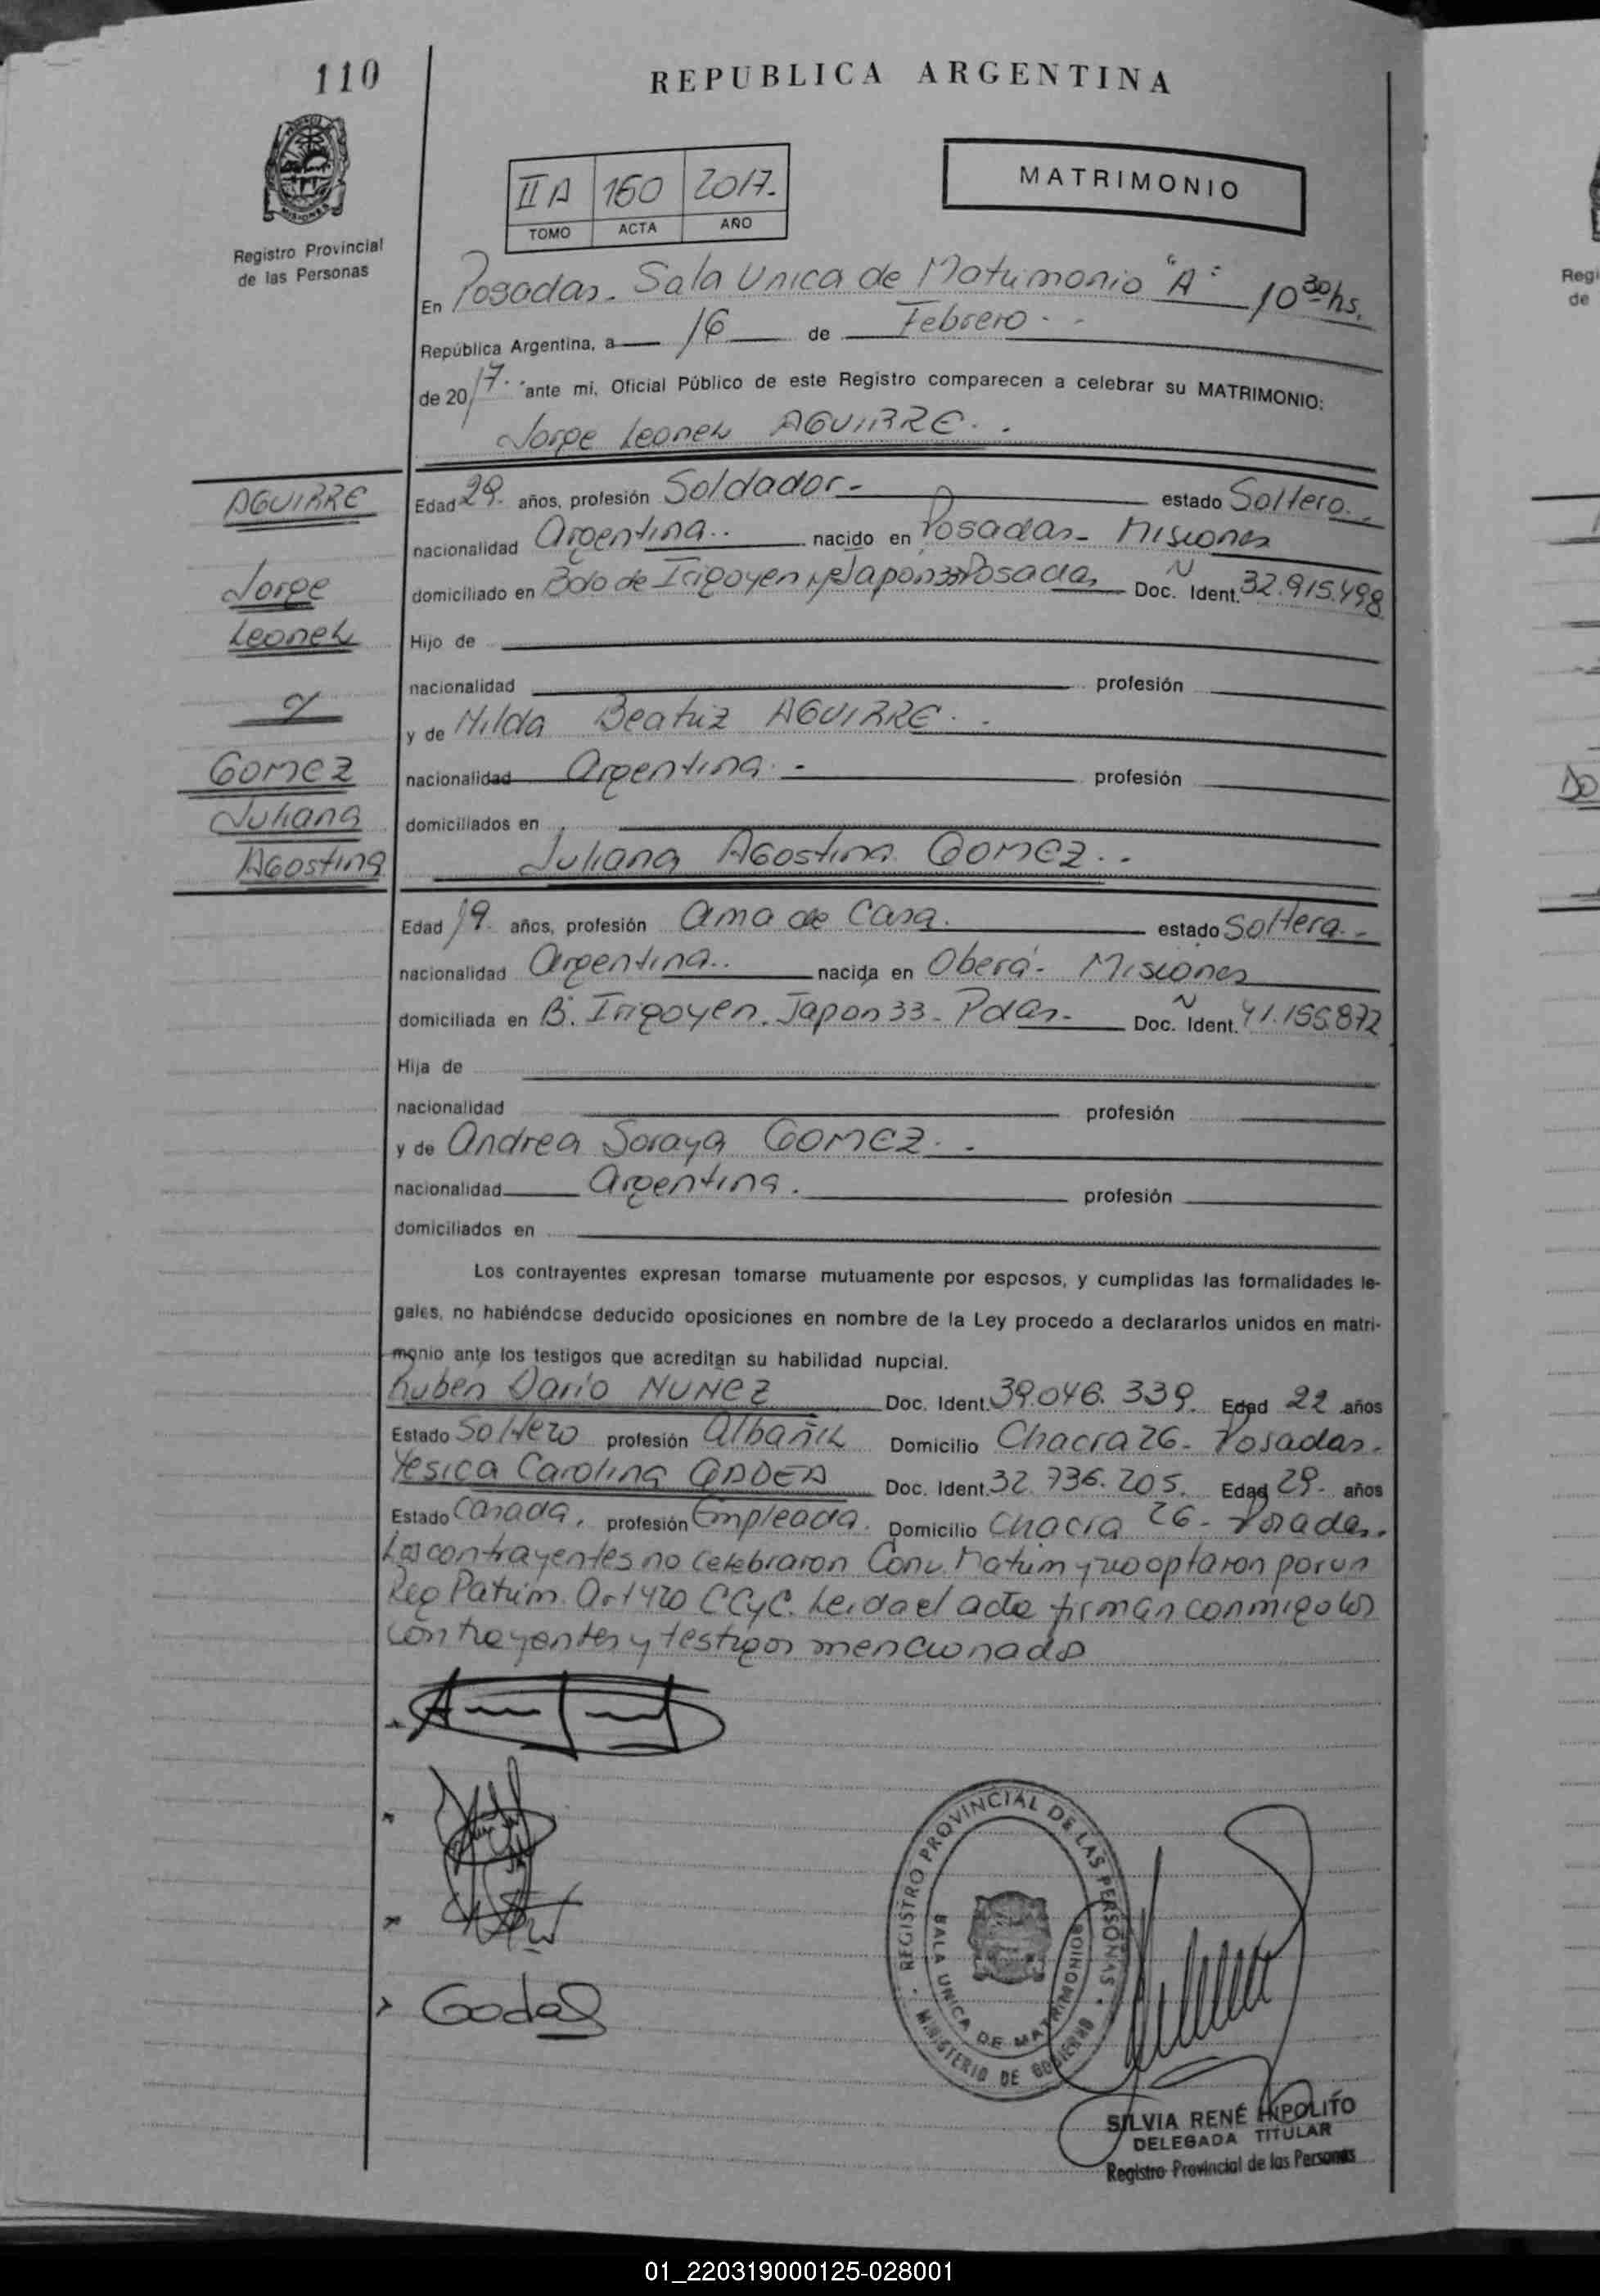 110
REPUBLICA ARGENTINA
MISIONES
Registro Provincial
de las Personas
II A 160 2017.
TOMO ACTA AÑO
MATRIMONIO
En Posadas. Sala Unica de Matrimonio "A" 10 30 hs.
República Argentina, a 16 de Febrero
de 2017. ante mi, Oficial Público de este Registro comparecen a celebrar su MATRIMONIO:
Jorge Leonel AGUIRRE.
AGUIRRE
Jorge
Leonel
y
GOMEZ
Juliana
Agostina
Edad 29. años, profesión Soldador estado Soltero.
nacionalidad Argentina.. nacido en Posadas - Misiones
domiciliado en Bdo de Irigoyen Japon 33 Posadas Doc. Ident. 32.915.498
Hijo de
nacionalidad profesión
y de Hilda Beatriz AGUIRRE.
nacionalidad Argentina. profesión
domiciliados en
Juliana Agostina GOMEZ..
Edad 19. años, profesión ama de Casa. estado Soltera.
nacionalidad Argentina.. nacida en Oberá - Misiones
domiciliada en B. Irigoyen. Japon 33 - Pdas. Doc. Ident. 41.155.872
Hija de
nacionalidad profesión
y de Andrea Soraya GOMEZ.
nacionalidad Argentina. profesión
domiciliados en
Los contrayentes expresan tomarse mutuamente por esposos, y cumplidas las formalidades le-
gales, no habiéndose deducido oposiciones en nombre de la Ley procedo a declararlos unidos en matri-
monio ante los testigos que acreditan su habilidad nupcial.
Ruben Dario NUNEZ Doc. Ident. 39.046.339. Edad 22 años
Estado Soltero profesión Albañil Domicilio Chacra 26 - Posadas.
Yesica Carolina Doc. Ident. 32.736.205. Edad 29. años
Estado Casada, profesión Empleada. Domicilio Chacra 26 - Posadas.
Los contrayentes no celebraron Conv. Matrim y no optaron por un
Reg Patrim. Art 420 CCyC. Leida el acta firman conmigo los
contrayentes y testigos mencionados
Godas
REGISTRO PROVINCIAL DE LAS PERSONAS
SALA UNICA DE MATRIMONIOS
MINISTERIO DE GOBIERNO
SILVIA RENÉ HIPOLITO
DELEGADA TITULAR
Registro Provincial de las Personas
Regi
de
01_220319000125-028001